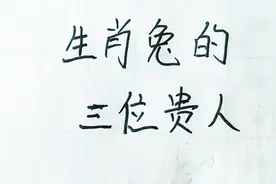 生肖兔的
三位贵人